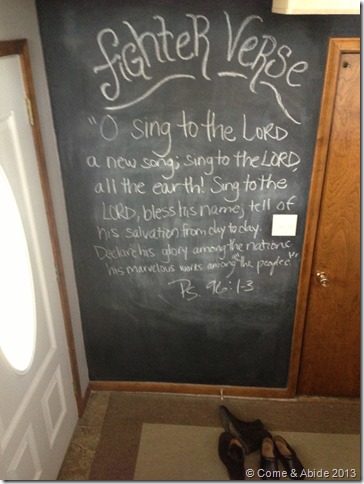 fighter Verse
"O sing to the LORD
a new song; sing to the LORD,
all the earth! Sing to the
LORD, bless his name; tell of
his salvation from day to day.
Declare his glory among the nations
his marvelous works among the peoples!"
Ps. 96:1-3
© Come & Abide 2013